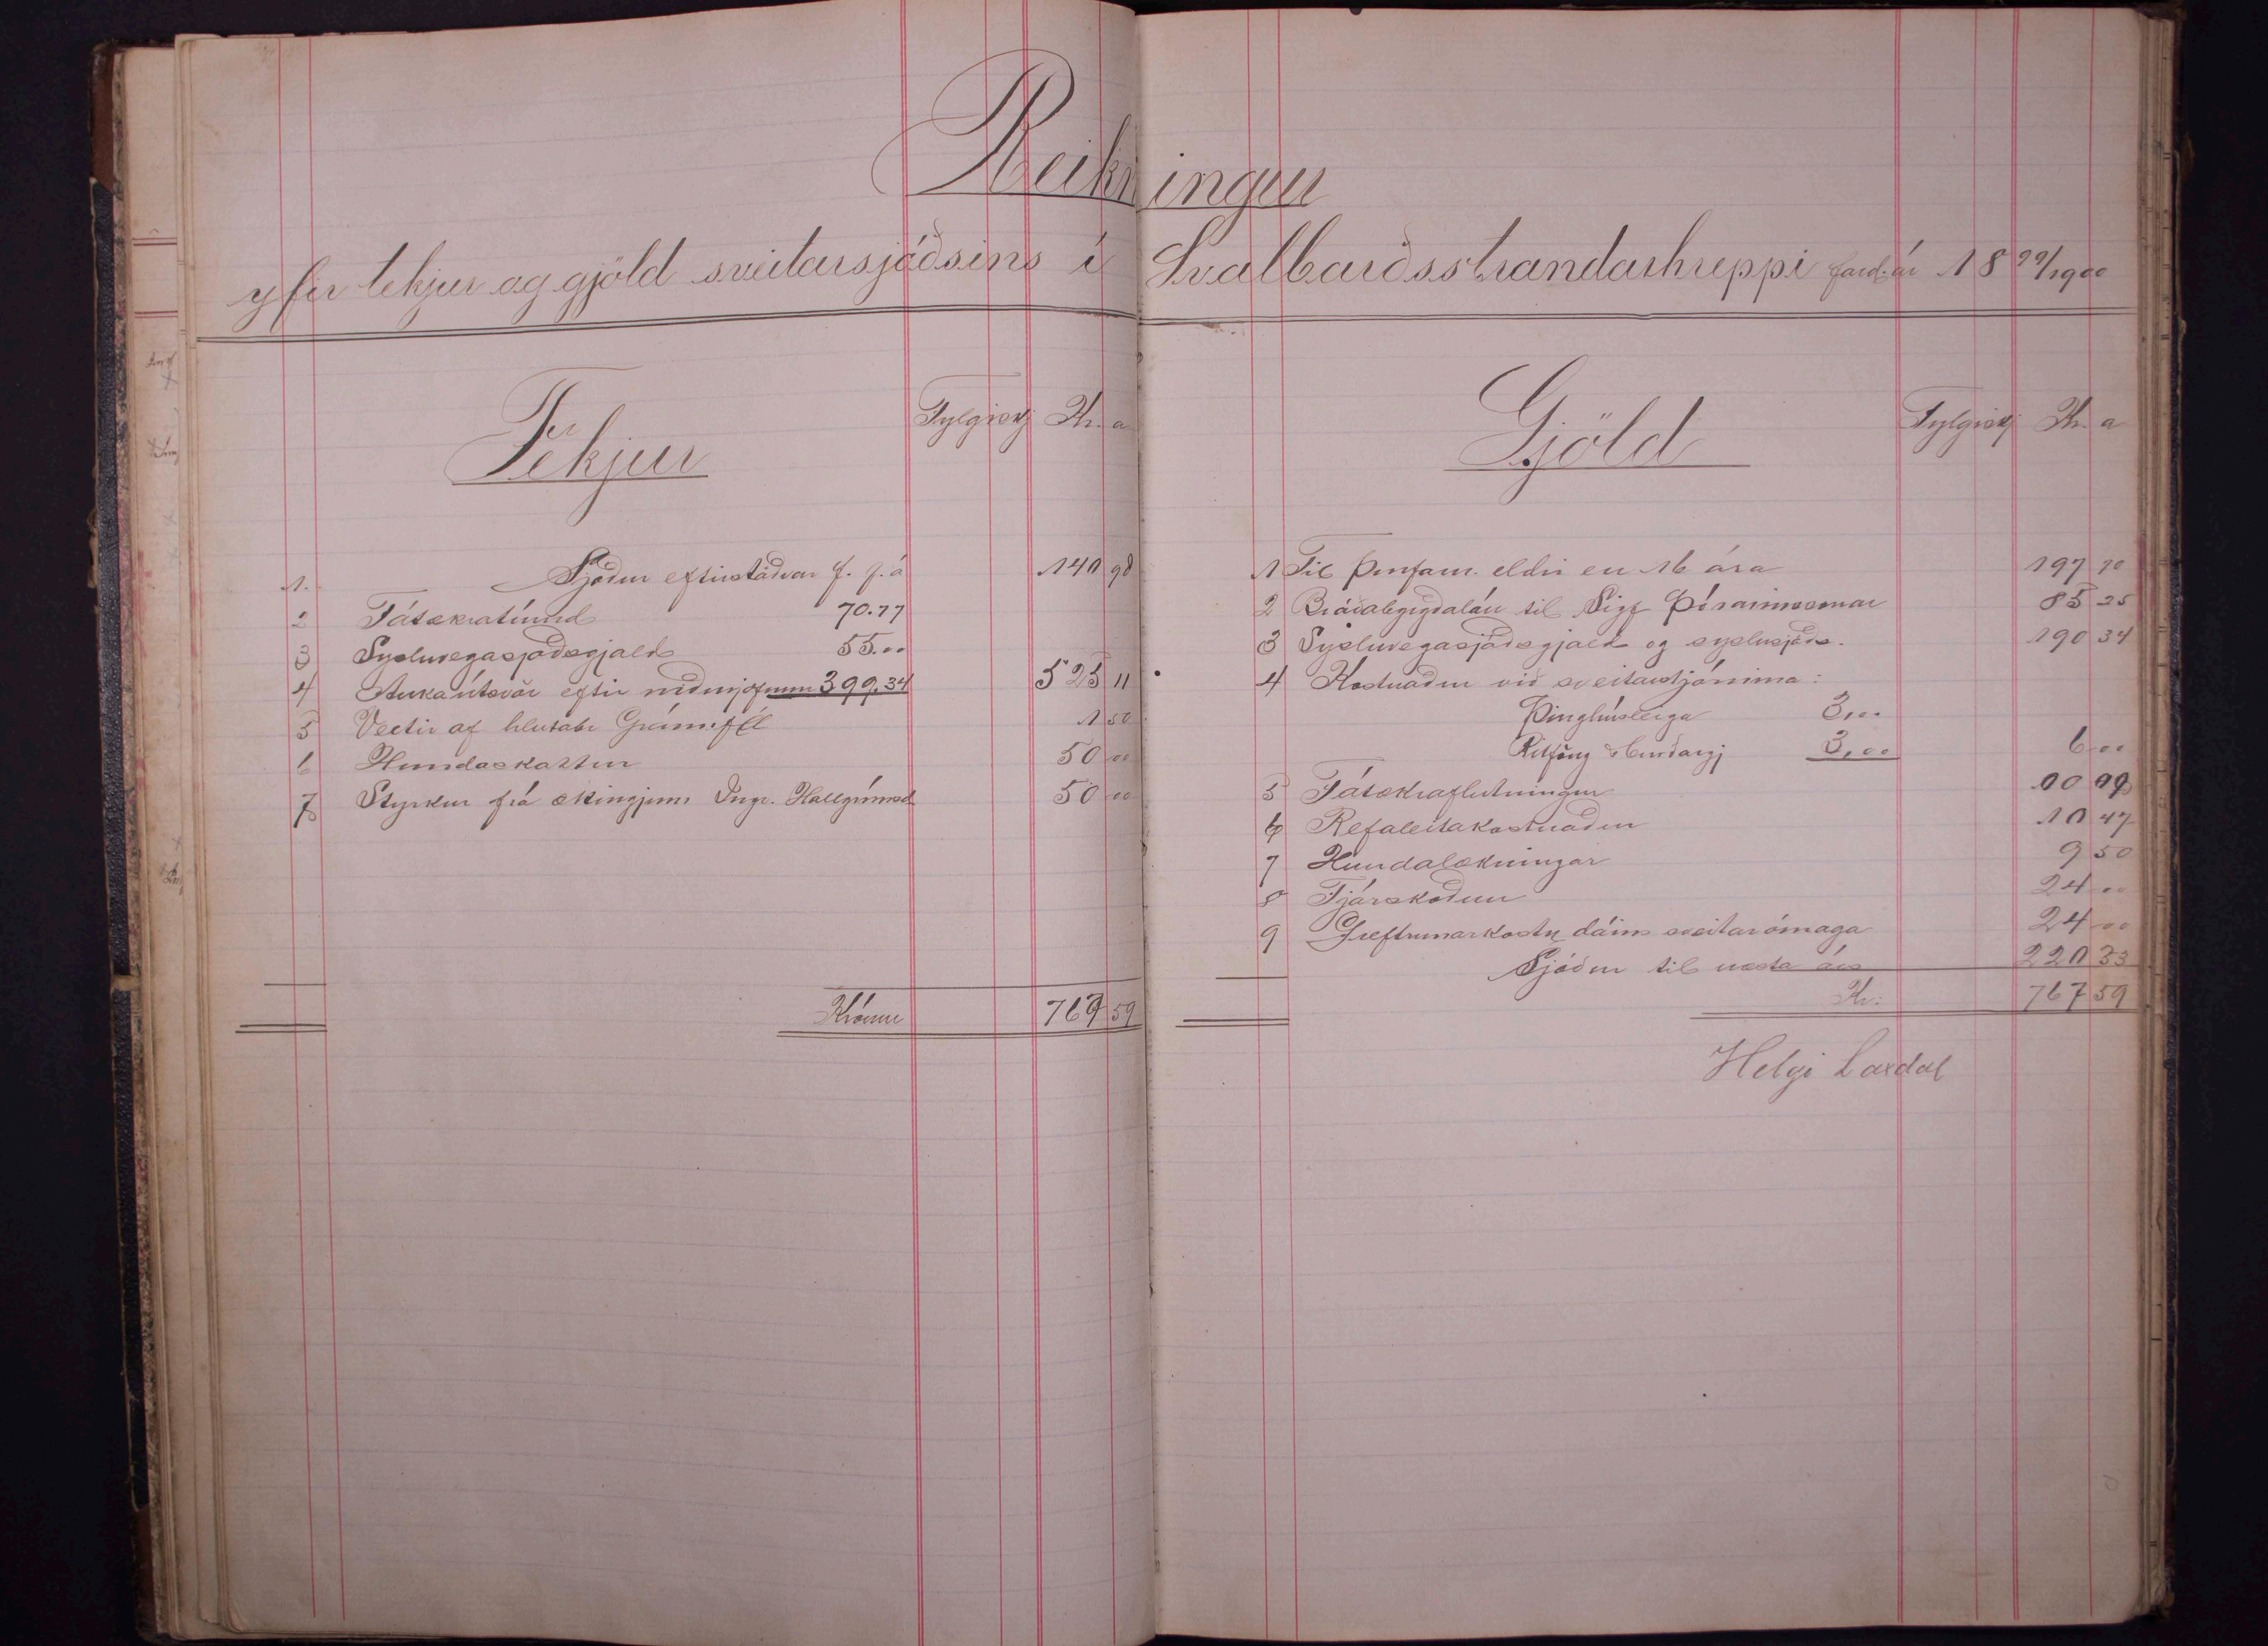 Reikningur
yfir tekjur og gjöld sveitarsjóðsins í Svalbarðsstrandarhreppi fard.ár 1899/1900
Tekjur Fylgiskj Kr. a
1. Sjóður eftirstöðvar f. f. á 140 98
2 Fátækratíund 70.77
3 Sýsluvegasjóðsgjald 55.00
4 Aukaútsvör eftir niðurjöfnun 399.34 525 11
5 Vextir af hlutabr Gránufél 1 50
6 Hundaskattur 50 00
7 Styrkur frá ættingjum Ingr. Hallgrímsd 50 00
Krónur 767 59
Gjöld Fylgiskj Kr. a
1 Til þurfam. eldri en 16 ára 197 70
2 Bráðabyrgðalán til Sigf Þórarinssonar 85 25
3 Sýsluvegasjóðsgjald og sýslusjóðs. 190 34
4 Kostnaður við sveitarstjórnina:
Þinghúsleiga 3,00
Ritföng & burðargj 3,00 6 00
5 Fátækraflutningur
6 Refaleitakostnaður 10 47
7 Hundalækningar 9 50
8 Fjárskoðun 24 00
9 Greftrunarkostn dáins sveitarómaga 24 00
Sjóður til næsta árs 220 33
Kr: 767 59
Helgi Laxdal